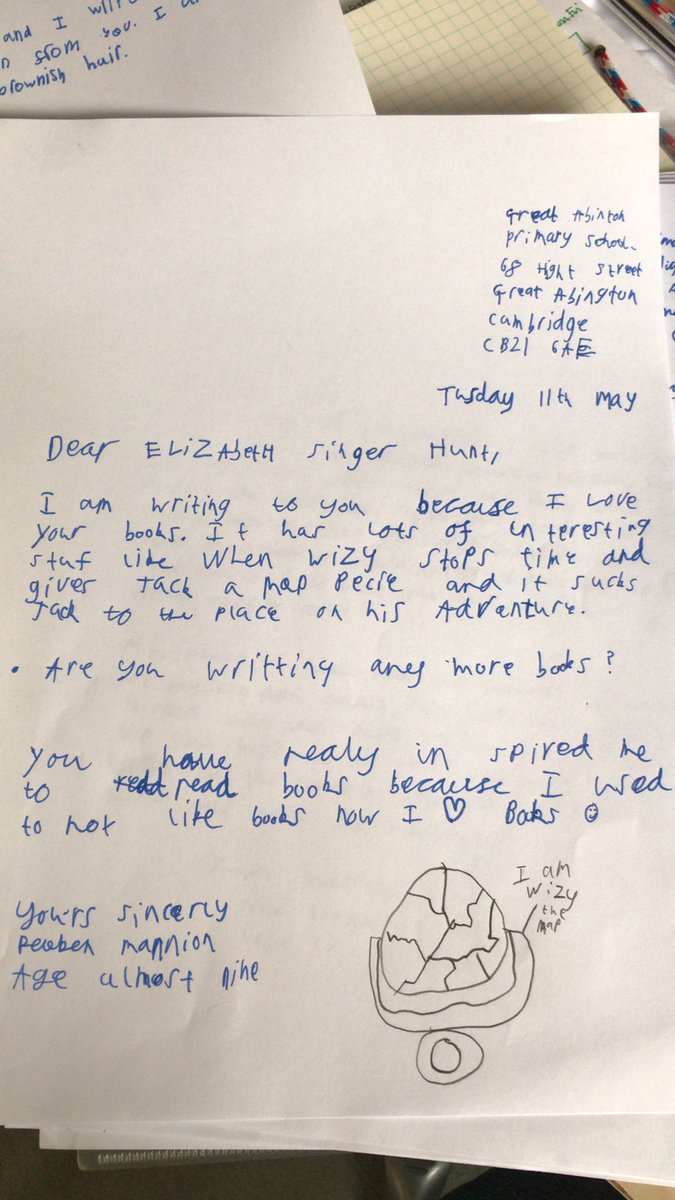 and I will
n from you. I a
brownish hair.
Great Abinton
primary school.
68 Hight street
Great Abington
Cambridge
CB21 6AE
Tusday 11th may
Dear ELIZAbetH Singer Hunt,
I am writing to you because I Love
your books. It has lots of in teresting
stuf like when wizy stops time and
gives Jack a map pecie and it sucks
Jack to the place on his Adventure.
• Are you writting any more books?
you have realy in spired me
to read books because I used
to not like books now I ♡ Books ☺
I am
wizy
the
map
yours sincerly
Reuben mannion
Age almost nine